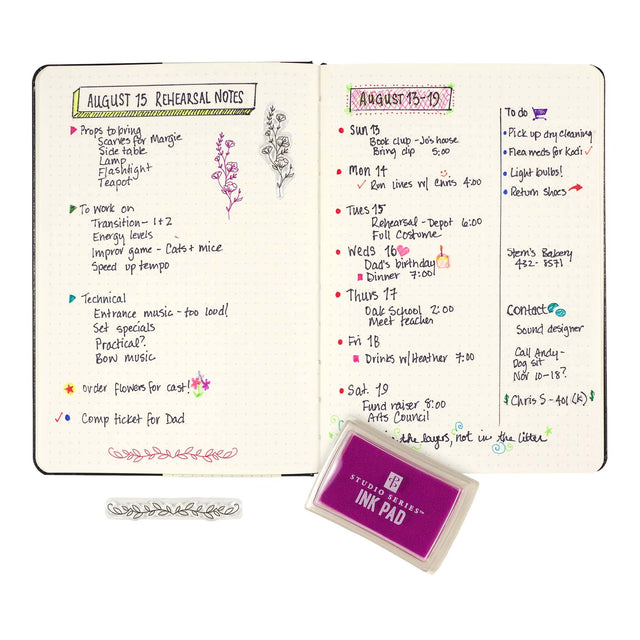 AUGUST 15 REHEARSAL NOTES
Props to bring
Scarves for Margie
Side table
Lamp
Flashlight
Teapot
To Work on
Transition - 1+2
Energy levels
Improv game - Cats + mice
Speed up tempo
Technical
Entrance music - too loud!
Set specials
Practical?
Bow music
order flowers for cast!
Comp ticket for Dad
AUGUST 13-19
Sun 13
Book club - Jo's house
Bring dip 5:00
Mon 14
Run lines w/ Chris 4:00
Tues 15
Rehearsal - Depot 6:00
Full Costume
Weds 16
Dad's birthday
Dinner 7:00!
Thurs 17
Oak School 2:00
Meet teacher
Fri 18
Drinks w/Heather 7:00
Sat. 19
Fund raiser 8:00
Arts Council
in the layers, not in the litter
To do
Pick up dry cleaning
Flea meds for Kodi
Light bulbs!
Return shoes
Stern's Bakery
432-8571
Contact
Sound designer
Call Andy-
Dog sit
Nov 10-18?
$ Chris S - 401(k) $
STUDIO SERIES™
INK PAD